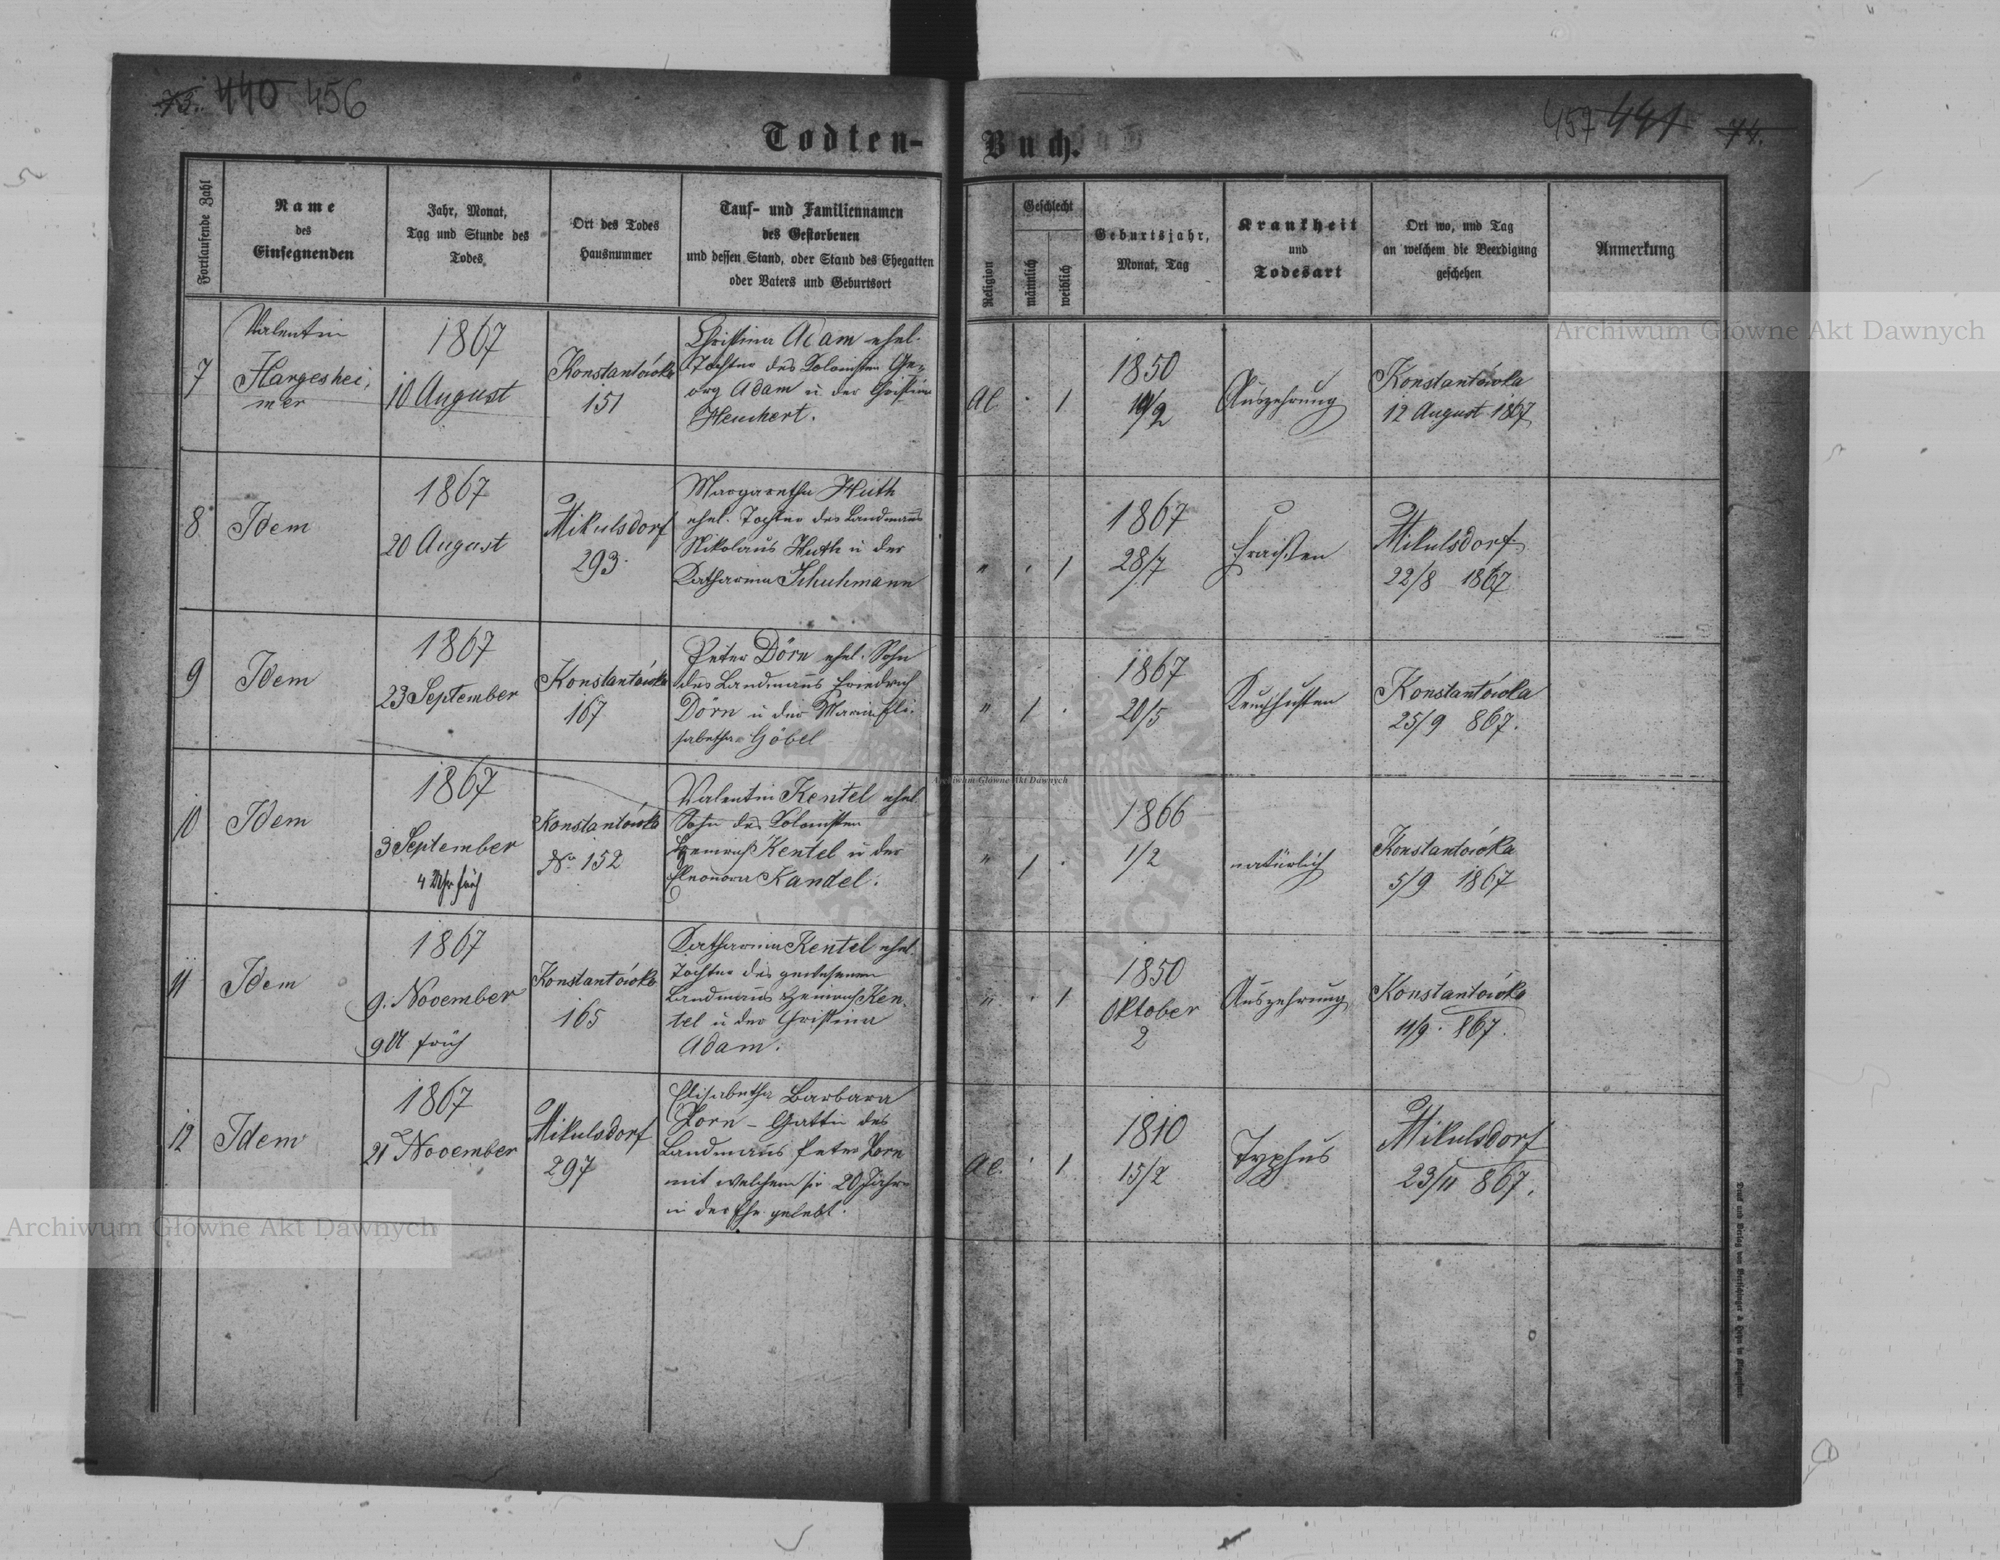 73. 440 456
457 441 74.
Todten-Buch.
Fortlaufende Zahl
Name
des
Einsegnenden
Jahr, Monat,
Tag und Stunde des
Todes
Ort des Todes
Hausnummer
Tauf- und Familiennamen
des Gestorbenen
und dessen Stand, oder Stand des Ehegatten
oder Vaters und Geburtsort
Religion
Geschlecht
männlich
weiblich
Geburtsjahr,
Monat, Tag
Krankheit
und
Todesart
Ort wo, und Tag
an welchem die Beerdigung
geschehen
Anmerkung
7
Valentin
Hargeshei-
mer
1867
10 August
Konstantówka
151
Christina Adam ehel.
Tochter des Kolonisten Ge-
org Adam u der Christina
Heuchert.
AC
1
1850
Auszehrung
Konstantówka
12 August 1867
8
Idem
1867
20 August
Mikulsdorf
293
Margaretha Huth
ehel. Tochter des Landmanns
Nikolaus Huth u der
Katharina Schuhmann
"
1
1867
28/7
Fraisen
Mikulsdorf
22/8 1867
9
Idem
1867
23 September
Konstantówka
167
Peter Dörn ehel. Sohn
des Landmanns Friedrich
Dörn u der Maria Eli-
sabetha Göbel
"
1
1867
20/5
Keuchhusten
Konstantówka
25/9 867.
10
Idem
1867
3 September
4 Uhr früh
Konstantówka
No 152
Valentin Kentel ehel
Sohn des Kolonisten
Heinrich Kentel u der
Eleonora Kandel.
"
1
1866
1/2
natürlich
Konstantówka
5/9 1867
11
Idem
1867
9. November
9 U früh
Konstantówka
165
Katharina Kentel ehel.
Tochter des gewesenen
Landmanns Heinrich Ken-
tel u der Christina
Adam.
"
1
1850
Oktober
2
Auszehrung
Konstantówka
11/9. 867.
12
Idem
1867
21 November
Mikulsdorf
297
Elisabetha Barbara
Gattin des
Landmanns Peter
mit welchem sie 20 Jahre
in der Ehe gelebt.
AC.
1
1810
15/2
Typhus
Mikulsdorf
23/11 867.
Archiwum Główne Akt Dawnych
Archiwum Główne Akt Dawnych
Archiwum Główne Akt Dawnych